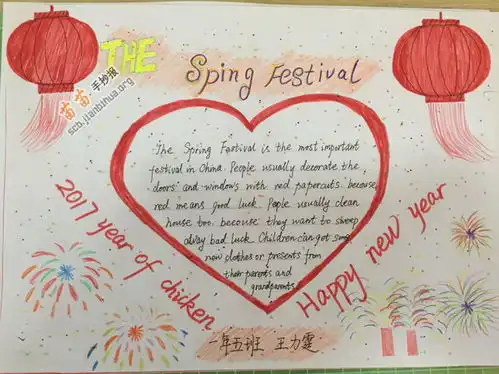 THE
Sping Festival
苗苗·手抄报
scb.jianbihua.org
The Spring Fastival is the most important
festival in China. People usually decorate the
doors and windows with red papercuts. because
red means good luck. Pagle usually clean
house too, because they want to sweep
away bad luck. Children can got some
new clothes or presents from
their parents and
grandparents.
2017 year of chicken
Happy new year
一年五班 王力霆